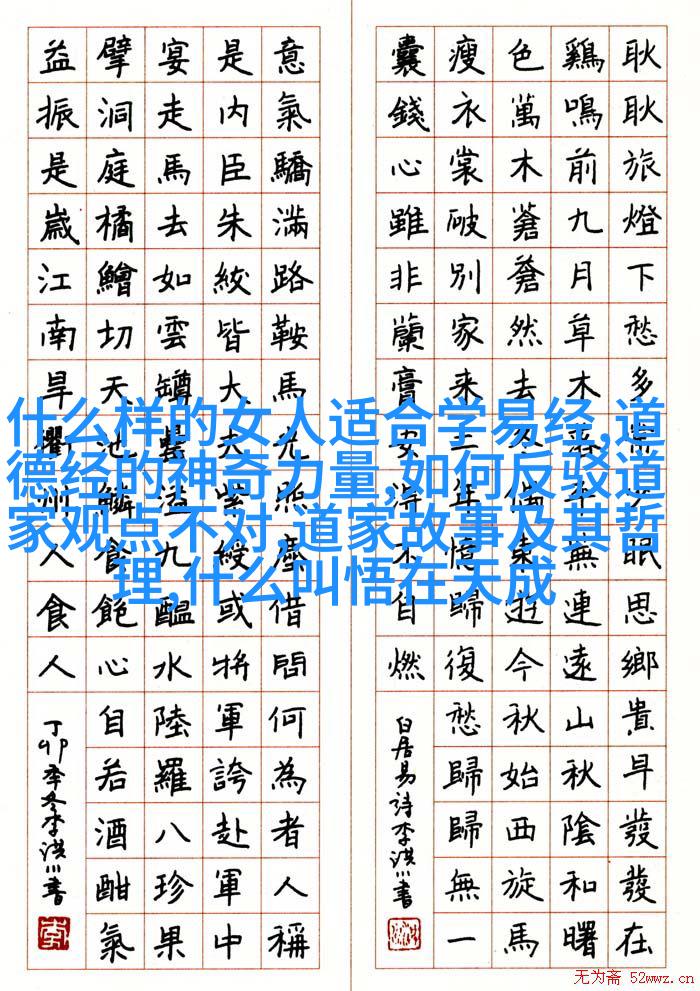 耿耿旅燈下愁多常少眠思鄉貴早發發在
鷄鳴前九月草木落平蕪連遠山秋陰和曙
色萬木蒼蒼然去冬偶東遊今秋始西旋馬
瘦衣裳破別家來二年憶歸復愁歸歸無一
囊錢心雖非蘭膏安得不自燃
白居易詩李洪川書
意氣驕滿路鞍馬光照塵借問何為者人稱
是內臣朱紱皆大夫紫綬或將軍誇赴軍中
宴走馬去如雲罇罍溢九醞水陸羅八珍果
擘洞庭橘鱠切天池鱗食飽心自若酒酣氣
益振是歲江南旱衢州人食人
丁卯季冬李洪川書
什么样的女人适合学易经,道
德经的神奇力量,如何反驳道
家观点不对,道家故事及其哲
理,什么叫悟在天成
无为斋 52wwz.cn